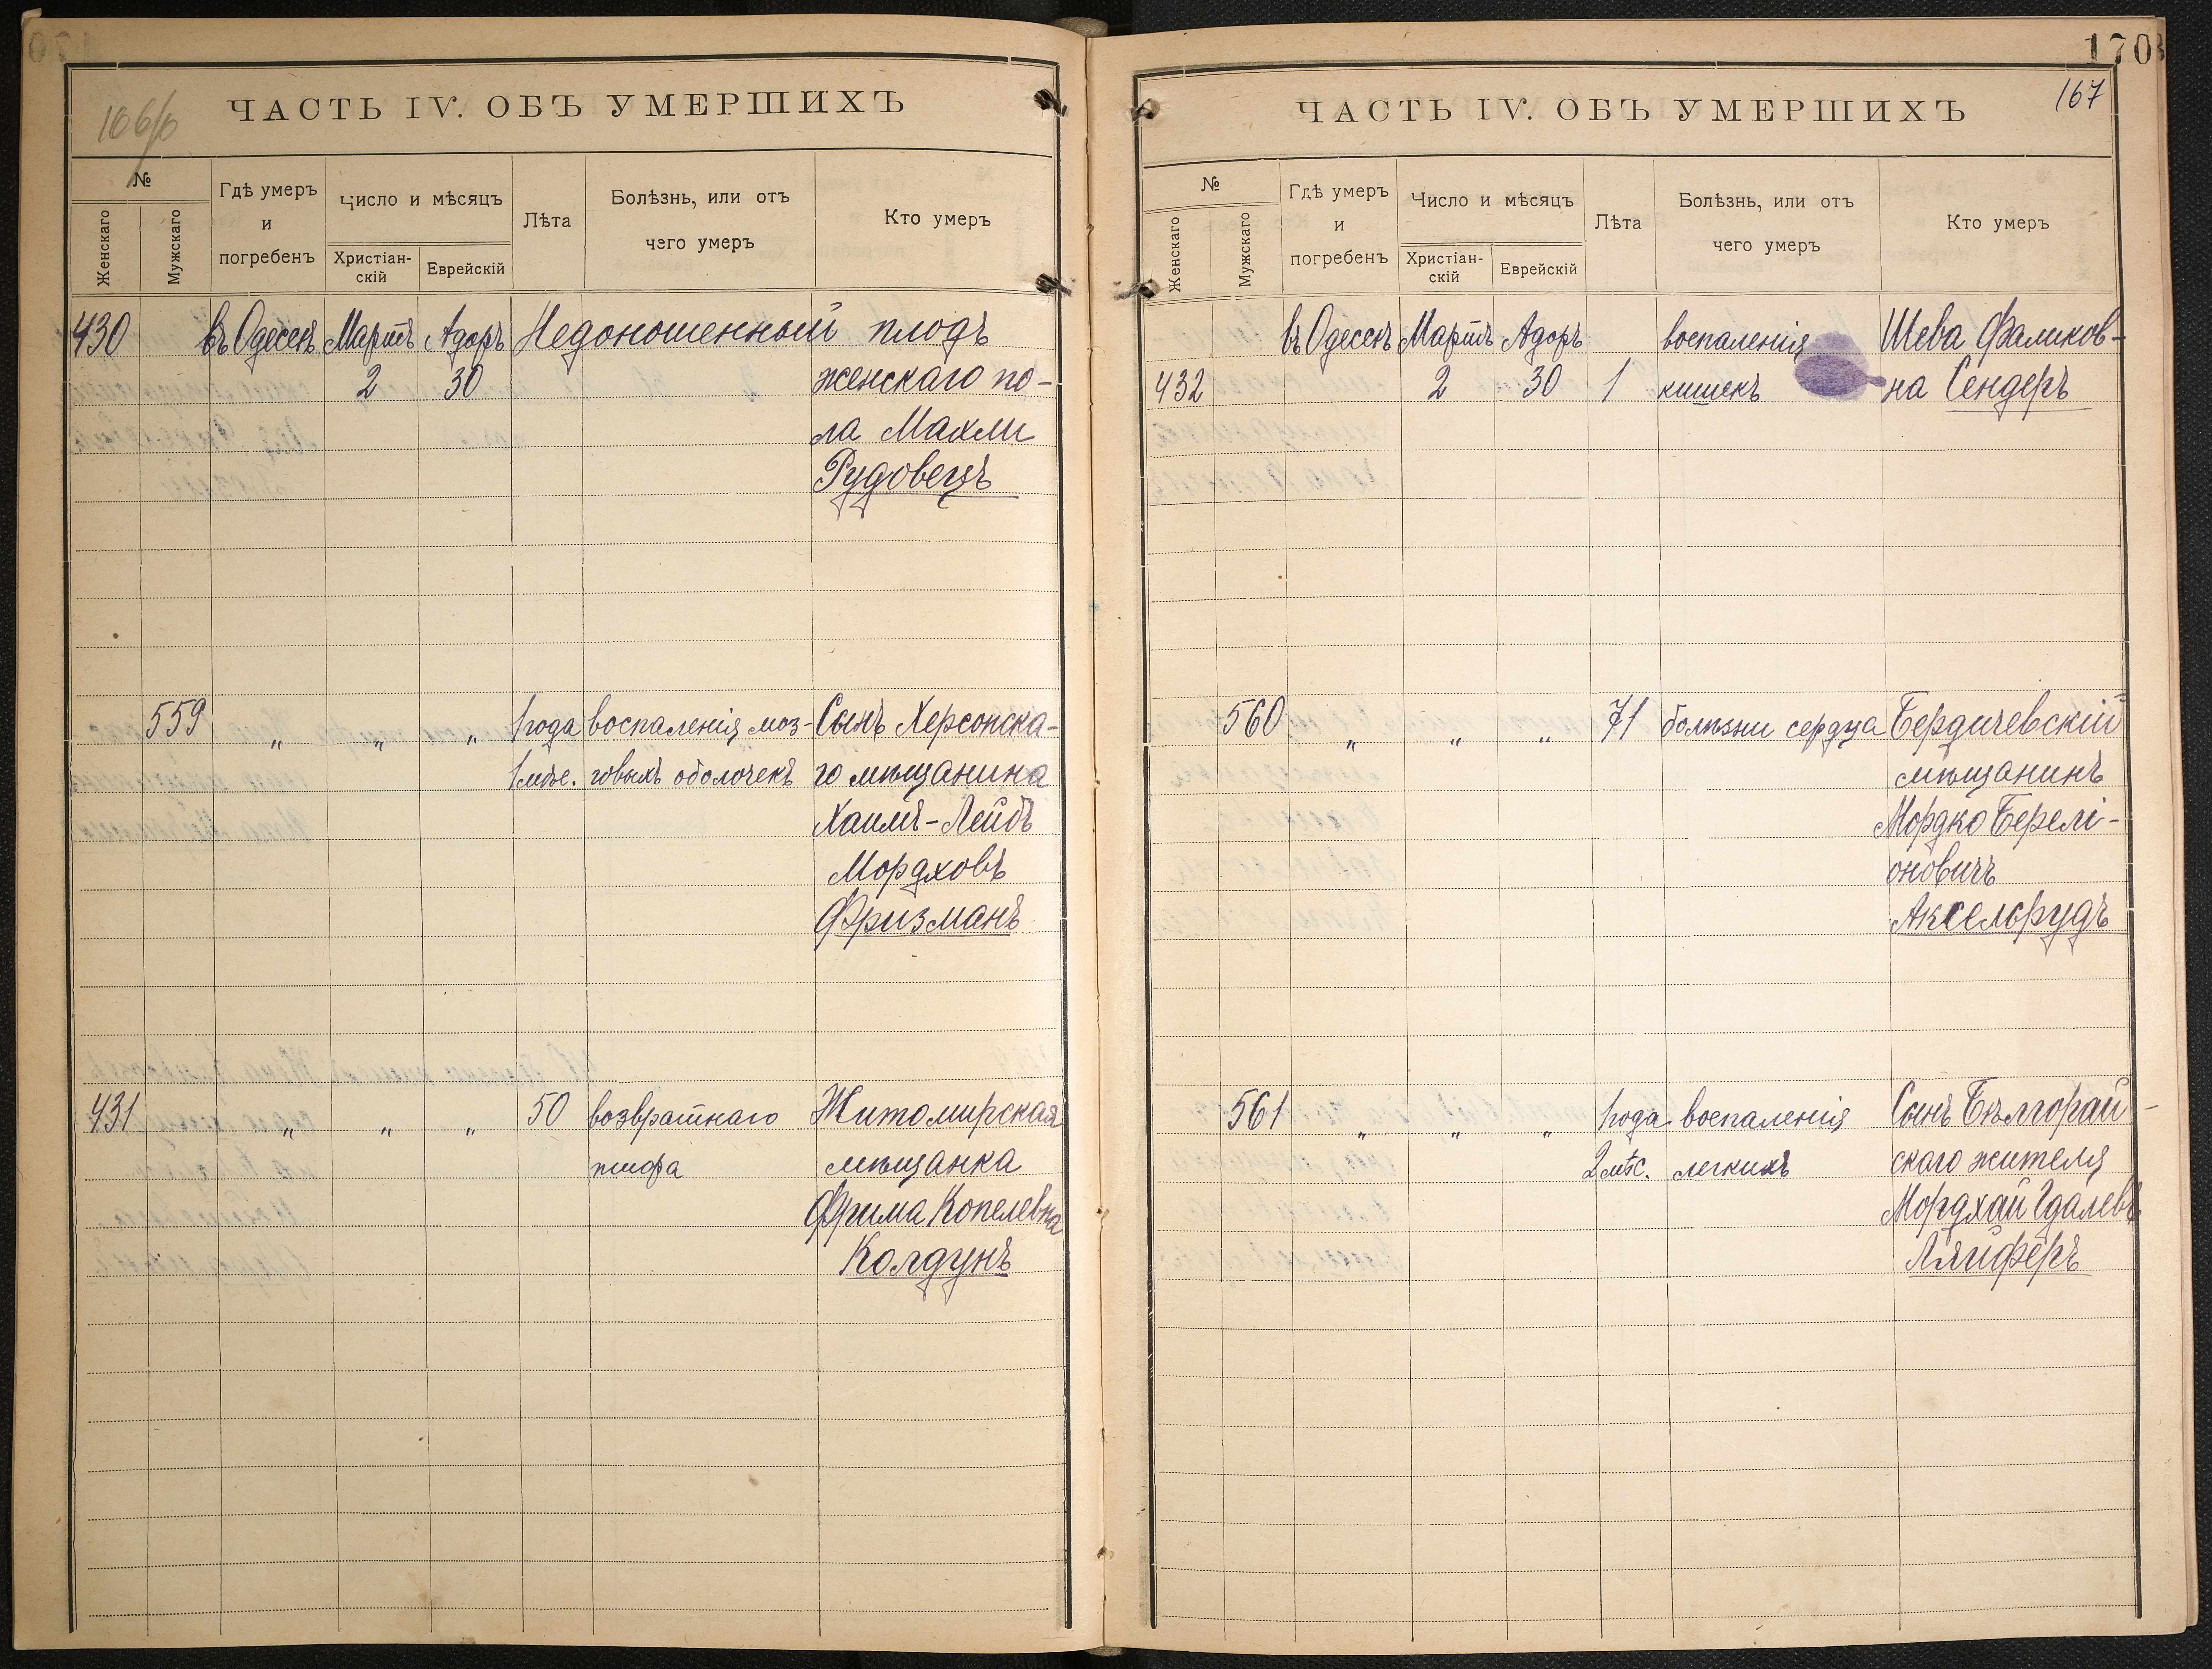 106/б
ЧАСТЬ IV. ОБЪ УМЕРШИХЪ
№
Женскаго
Мужскаго
Гдѣ умеръ
и
погребенъ
Число и мѣсяцъ
Христіан-
скій
Еврейскій
Лѣта
Болѣзнь, или отъ
чего умеръ
Кто умеръ
430 въ Одессѣ Мартъ Адоръ Недоношенный плодъ
2 30 женскаго по-
ла Махли
Рудовецъ
559 " " " 1 года воспаленія моз- Сынъ Херсонска-
1 мѣс. говыхъ оболочекъ го мѣщанина
Хаимъ-Лейбъ
Мордховъ
Фризманъ
431 " " " 50 возвратнаго Житомирская
тифа мѣщанка
Фрима Копелевна
Колдунъ
170
167
ЧАСТЬ IV. ОБЪ УМЕРШИХЪ
№
Женскаго
Мужскаго
Гдѣ умеръ
и
погребенъ
Число и мѣсяцъ
Христіан-
скій
Еврейскій
Лѣта
Болѣзнь, или отъ
чего умеръ
Кто умеръ
въ Одессѣ Мартъ Адоръ воспаленія Шева Фаликов-
432 2 30 1 кишекъ на Сендеръ
560 " " " 71 болѣзни сердца Бердичевскій
мѣщанинъ
Мордко Берелі-
оновичъ
Аксельрудъ
561 " " " 1 года воспаленія Сынъ Бѣлгорай-
2 мѣс. легкихъ скаго жителя
Мордхай Гдалевъ
Ляйферъ